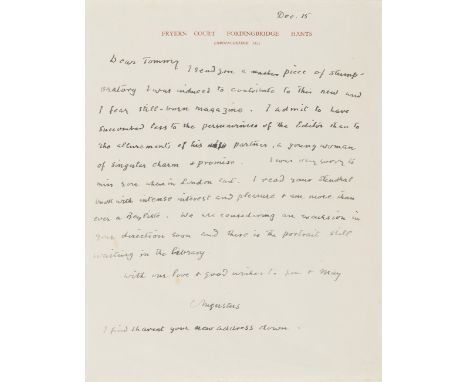 Dec. 15
FRYERN COURT FORDINGBRIDGE HANTS
Dear Tommy
I send you a piece of stump-
oratory I was induced to contribute to this new and
I fear still-born magazine. I admit to have
succumbed less to the persuasiveness of the Editor than to
the allurements of his partner, a young woman
of singular charm & promise. I was very sorry to
miss you when in London last. I read your Stendhal
book with intense interest and pleasure & am more than
ever a Beyliste. We are considering an excursion in
your direction soon and there is the portrait still
waiting in the library.
With our love & good wishes to you & May
Augustus
I find I haven't your new address down.